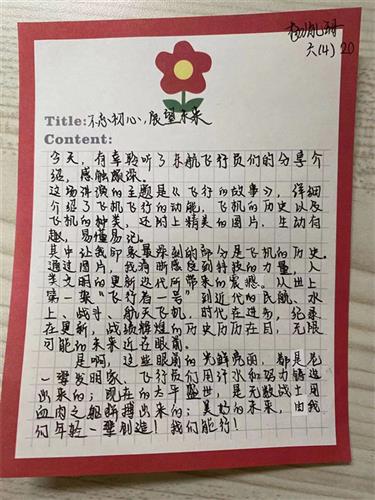 六(4) 20
Title: 不忘初心,展望未来
Content:
今天,有幸聆听了东航飞行员们的分享介
绍,感触颇深。
这场讲演的主题是《飞行的故事》,详细
介绍了飞机飞行的动能,飞机的历史以及
飞机的种类,还附上精美的图片,生动有
趣,易懂易记。
其中让我印象最深刻的部分是飞机的历史。
通过图片,我清晰感度到科技的力量,人
类文明的更新迭代所带来的震撼。从世上
第一架"飞行者一号"到近代的民航、水
上、战斗、航天飞机,时代在进步,纪录
在更新,战绩辉煌的历史历历在目,无限
可能的未来近在眼前。
是啊,这些眼前的光鲜亮丽,都是老
一辈发明家、飞行员们用汗水和努力铸造
出来的;现在的太平盛世,是无数战士用
血肉之躯拼搏出来的;美好的未来,由我
们年轻一辈创造!我们能行!